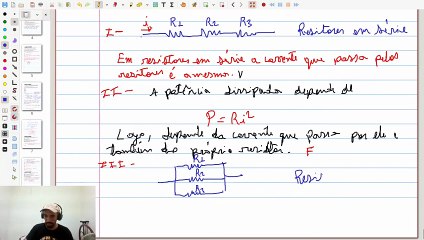 I- i R1 R2 R3 Resistores em série
Em resistores em série a corrente que passa pelos
resistores é a mesma. V
II- A potência dissipada depende de
P = Ri²
Logo, depende da corrente que passa por ele e
também do próprio resistor. F
III- R1
R2 Resi
R3